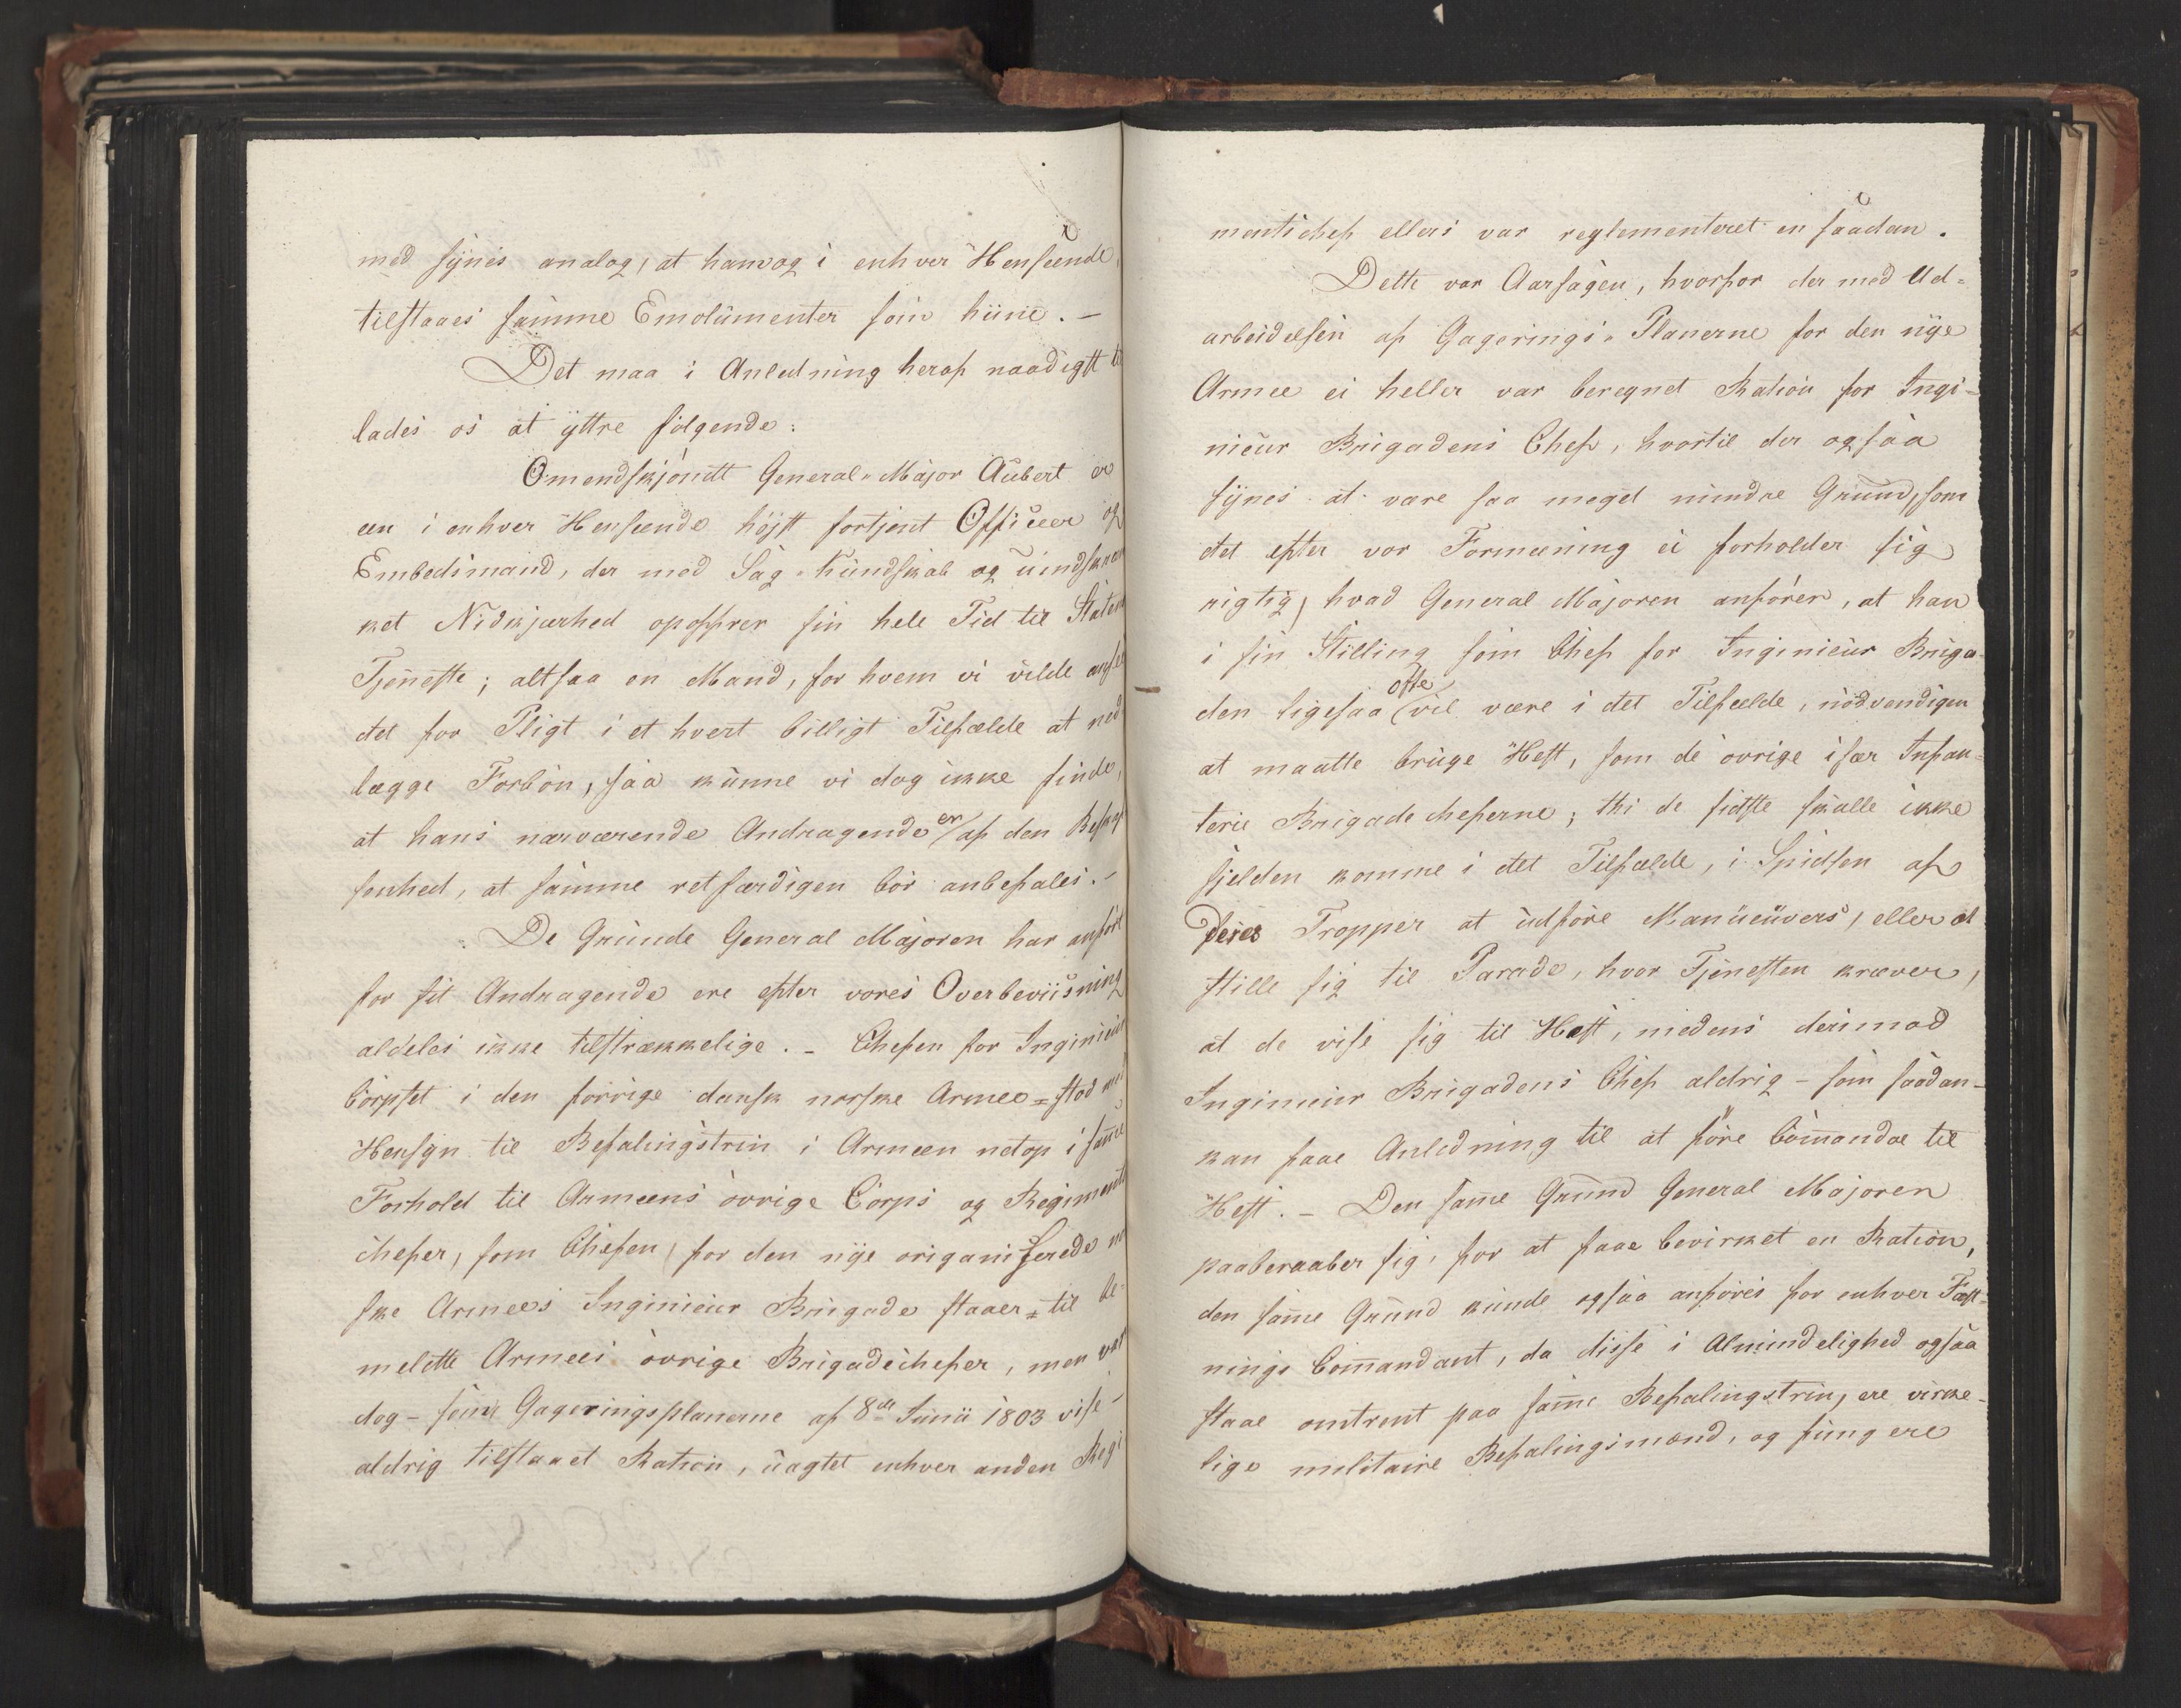 med synes analog, at han og i enhver Henseende
tilstaaes samme Emolumenter som hiine. –
Det maa i Anledning heraf naadigst ti
lades os at yttre følgende:
Omendskjøndt General-Major Aubert er
een i enhver Henseende højst fortjent Officeer og
Embedsmand, der med Sag-Kundskab og uindskræn
ket Nidkjærhed opoffrer sin hele Tid til Statens
Tjeneste; altsaa en Mand, for hvem vi vilde ansee
det for Pligt i et hvert billigt Tilfælde at ned
lægge Forbøn, saa kunne vi dog ikke finde,
at hans nærværende Andragende er af den Beskaf
fenhed, at samme retfærdigen bør anbefales. –
De Grunde General Majoren har anført
for sit Andragende ere efter vores Overbeviisning
aldeles ikke tilstrækkelige. – Chefen for Ingenieur
Corpset i den forrige dansk norske Armee = stod med
Hensyn til Befalingstrin i Armeen netop i samme
Forhold til Armeens øvrige Corps og Regiments
chefer, som Chefen for den nye origaniserede no
ske Armees Inginieur Brigade staaer = til be-
meldte Armees øvrige Brigadechefer, men var
dog – som Gageringsplanerne af 8de Junii 1803 vise –
aldrig tilstaaet Ration, uagtet enhver anden Regi
mentschef ellers var reglementeret en saadan.
Dette var Aarsagen, hvorfor der med Ud-
arbeidelsen af Gagerings-Planerne for den nye
Armee ei heller var beregnet Ration for Ingi-
nieur Brigadens Chef, hvortil der ogsaa
synes at være saa meget mindre Grund, som
det efter vor Formeening ei forholder sig
rigtig, hvad General Majoren anfører, at han
i sin Stilling som Chef for Inginieur Briga-
den ligesaa ofte vil være i det Tilfælde, nödvendigen
at maatte bruge Hest, som de øvrige især Infan-
terie Brigadecheferne; thi de sidste skulle ikke
sjelden komme i det Tilfælde, i Spidsen af
deres Tropper at udføre Manüeüvers, eller at
stille sig til Parade, hvor Tjenesten kræver,
at de vise sig til Hest, medens derimod
Inginieur Brigadens Chef aldrig – som saadan –
kan faae Anledning til at føre Comandoe til
Hest. – Den same Grund General Majoren
paaberaaber sig, for at faae bevirket en Ration,
den same Grund kunde ogsaa anføres for enhver Fæst-
nings Comandant, da disse i Almindelighed ogsaa
staae omtrent paa same Befalingstrin, ere virke-
lige militaire Befalingsmænd, og fung ere